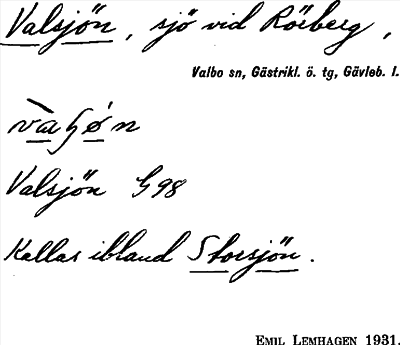 Valsjön, sjö vid Rörberg,
Valbo sn, Gästrikl. ö. tg, Gävleb. l.
Valsjön G98
Kallas ibland Storsjön.
EMIL LEMHAGEN 1931.